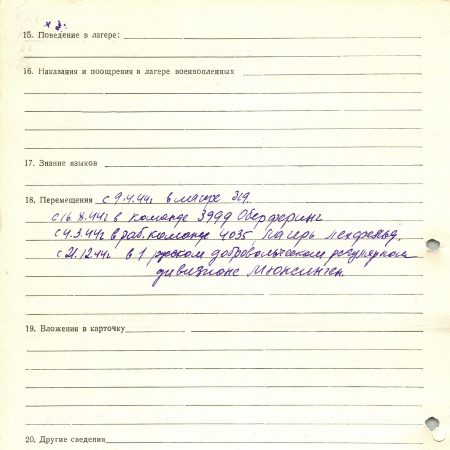 15. Поведение в лагере:
16. Наказания и поощрения в лагере военнопленных
17. Знание языков
18. Перемещения с 9.4.44г в лагере 319.
с 16.8.44г в команде 3999 Оберферинг
с 4.3.44г в раб. команде 4035 лагерь
с 21.12.44г в 1 русском добровольческом резервном
дивизионе Мюнсинген.
19. Вложения в карточку
20. Другие сведения